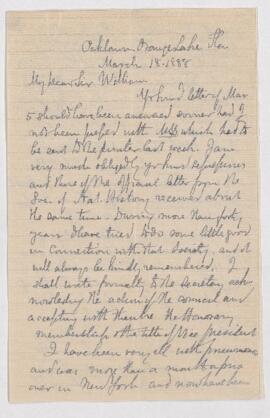 Oaklawn, Orange Lake Fla
March 18. 1888
My Dear Sir William
Yr kind letter of Mar
5 should have been answered sooner had I
not been pressed with MSS which had to
be sent to the printer last week. I am
very much obliged by yr kind
and that of the official letter from the
Soc. of Nat. History received about
the same time. During more than forty
years I have tried to do some little good
in connection with that Society, and it
will always be kindly remembered. I
shall write formally to the Secretary, ackn
owledging the action of the council and
accepting with thanks the Honorary
membership & the title of Vice president
I have been very ill with pneumonia
and was more than a month
over in New York and now have been